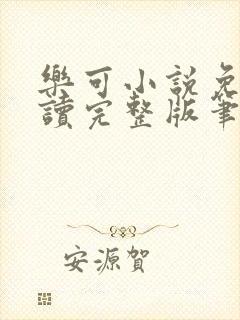 樂可小說免
讀完整版筆
安源賀